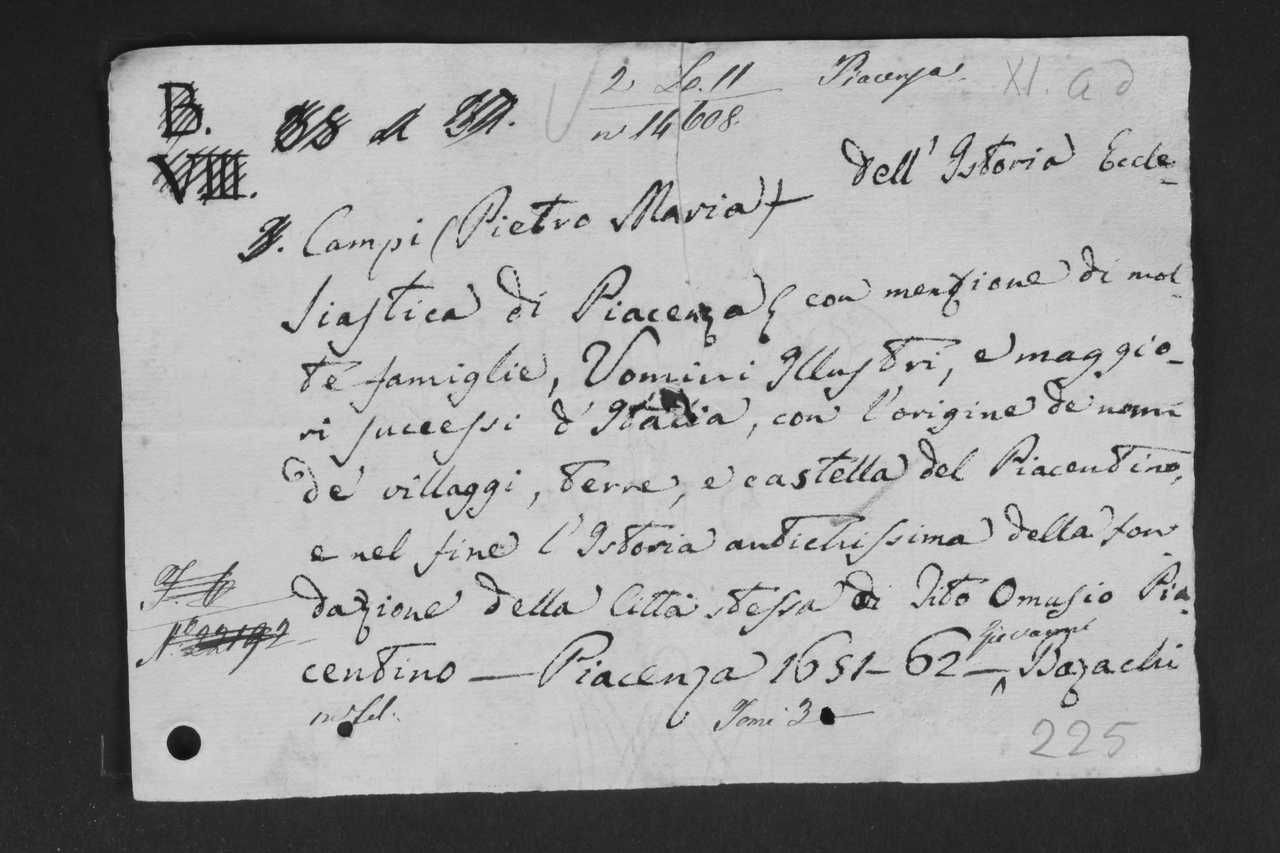 2 Lb. 11 Piacenza. XI. a d
B. 38 A 37. n° 14608
VIII.
Campi (Pietro Maria) dell' Istoria Eccle-
siastica di Piacenza, con menzione di mol-
te famiglie, Uomini Illustri, e maggio-
ri successi d'Italia, con l'origine de nomi
de' villaggi, terre, e castella del Piacentino,
e nel fine l'Istoria antichissima della fon
dazione della Città stessa di Tito Omusio Pia-
centino — Piacenza 1651-62 — Giovanni Bazachi
in fol. Tomi 3 —
N° 22192
225